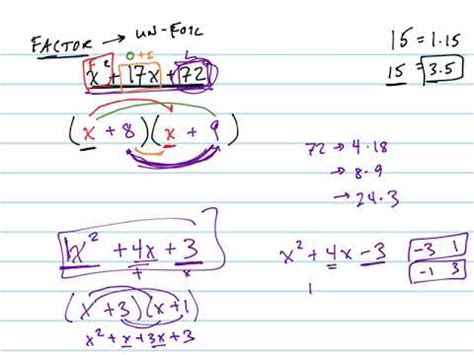 FACTOR → UN-FOIL
15 = 1·15
15 = 3·5
F O+I L
x² + 17x + 72
(x + 8)(x + 9)
72 → 4·18
→ 8·9
→ 24·3
1x² + 4x + 3
+ x
(x + 3)(x + 1)
x² + x + 3x + 3
x² + 4x - 3
-3 1
-1 3